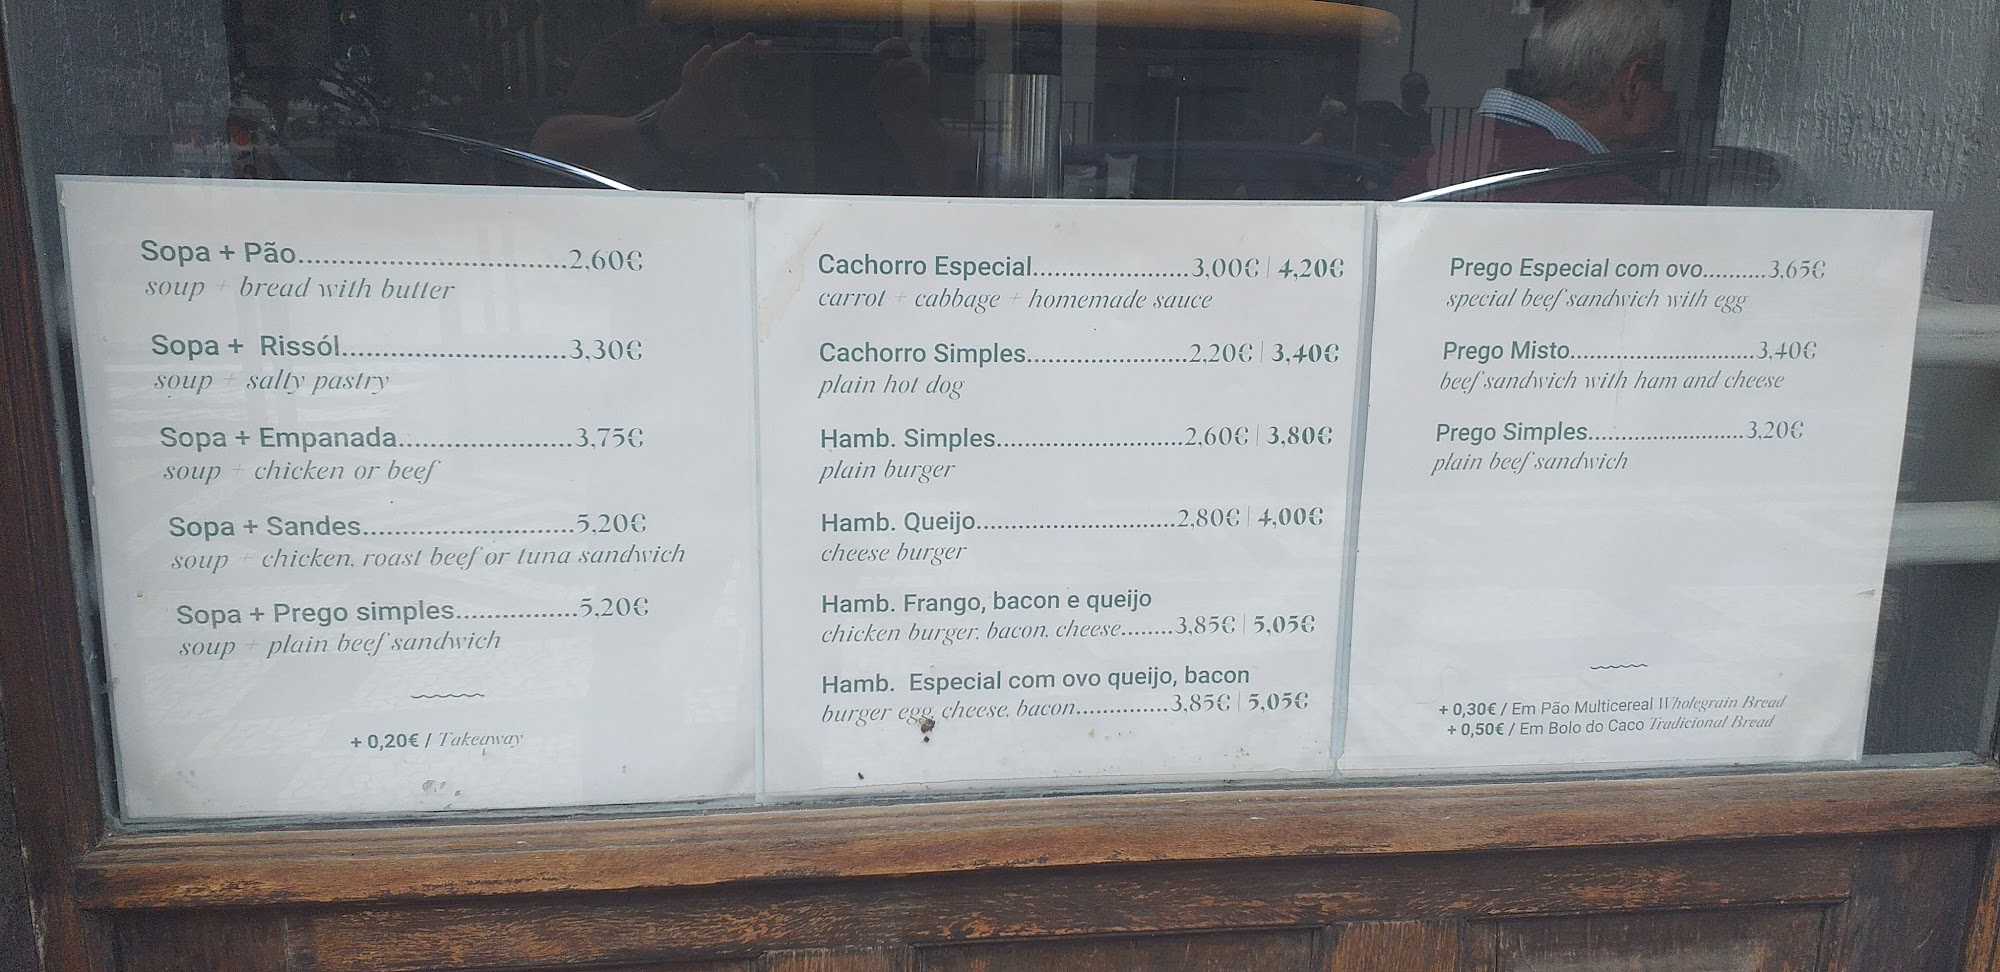 Sopa + Pão..................................2,60€
soup + bread with butter
Sopa + Rissól............................3,30€
soup + salty pastry
Sopa + Empanada......................3,75€
soup + chicken or beef
Sopa + Sandes..........................5,20€
soup + chicken, roast beef or tuna sandwich
Sopa + Prego simples...............5,20€
soup + plain beef sandwich
+ 0,20€ / Takeaway
Cachorro Especial......................3,00€ | 4,20€
carrot + cabbage + homemade sauce
Cachorro Simples.......................2,20€ | 3,40€
plain hot dog
Hamb. Simples...........................2,60€ | 3,80€
plain burger
Hamb. Queijo.............................2,80€ | 4,00€
cheese burger
Hamb. Frango, bacon e queijo
chicken burger, bacon, cheese........3,85€ | 5,05€
Hamb. Especial com ovo queijo, bacon
burger egg, cheese, bacon..............3,85€ | 5,05€
Prego Especial com ovo..........3,65€
special beef sandwich with egg
Prego Misto.............................3,40€
beef sandwich with ham and cheese
Prego Simples.........................3,20€
plain beef sandwich
+ 0,30€ / Em Pão Multicereal Wholegrain Bread
+ 0,50€ / Em Bolo do Caco Tradicional Bread